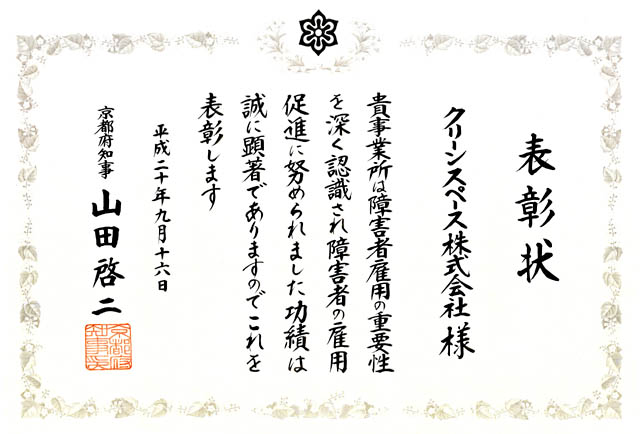 表彰状
クリーンスペース株式会社 様
貴事業所は障害者雇用の重要性
を深く認識され障害者の雇用
促進に努められました功績は
誠に顕著でありますのでこれを
表彰します
平成二十年九月十六日
京都府知事 山田啓二
京都府知事之印